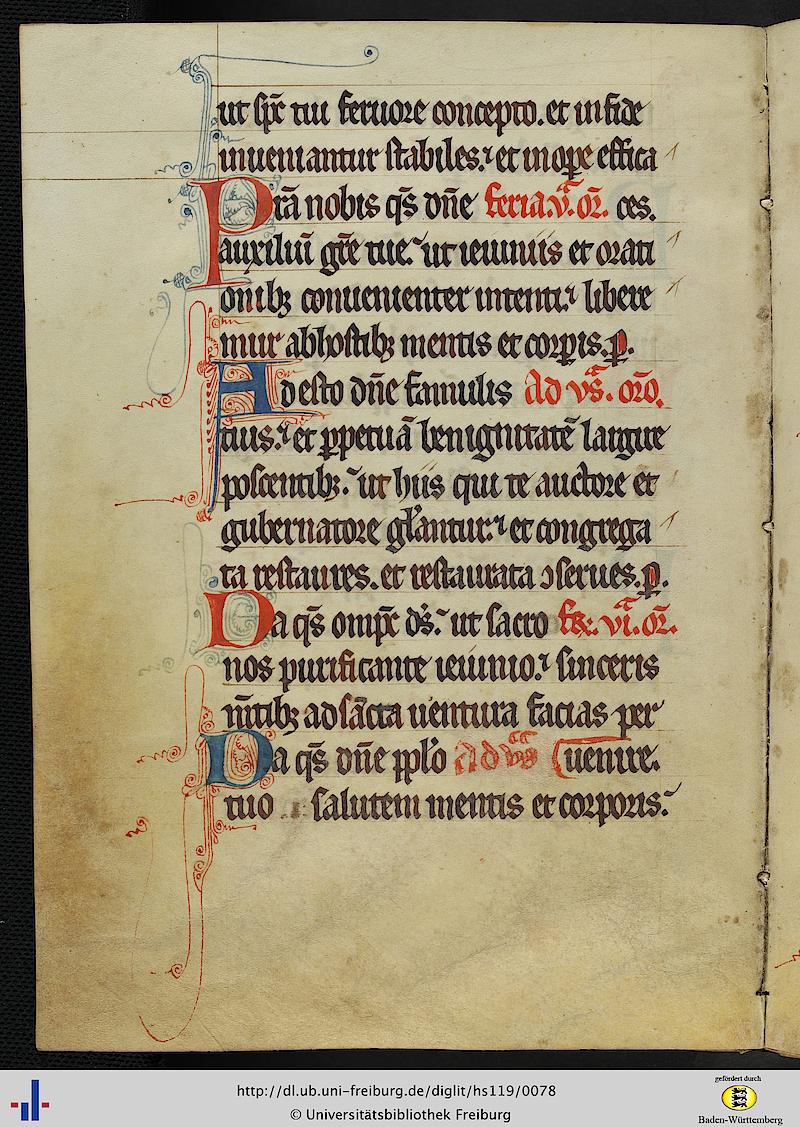 ut sp̄c tui feruore concepto. et in fide
inueniantur stabiles. et in op̄e effica
P̄rā nobis q̄s dn̄e feria. v. or̄. ces.
auxiliū gr̄e tue. ut ieiuniis et orati
onibꝫ conuenienter intenti. libere
mur ab hostibꝫ mentis et corꝑis. ꝑ.
Adesto dn̄e famulis Ad vs̄. oro̅.
tuis. et ꝑpetuā benignitatē largire
poscentibꝫ. ut hiis qui te auctore et
gubernatore gl̄antur. et congrega
ta restaures. et restaurata ꝯserues. ꝑ.
Da q̄s omp̄c ds̄. ut sacro fer̄. vi. or̄.
nos purificante ieiunio. sinceris
m̄tibꝫ ad sācta uentura facias per
Da q̄s dn̄e ppl̄o ad vs̄ uenire.
tuo salutem mentis et corporis.
http://dl.ub.uni-freiburg.de/diglit/hs119/0078
© Universitätsbibliothek Freiburg
gefördert durch
Baden-Württemberg